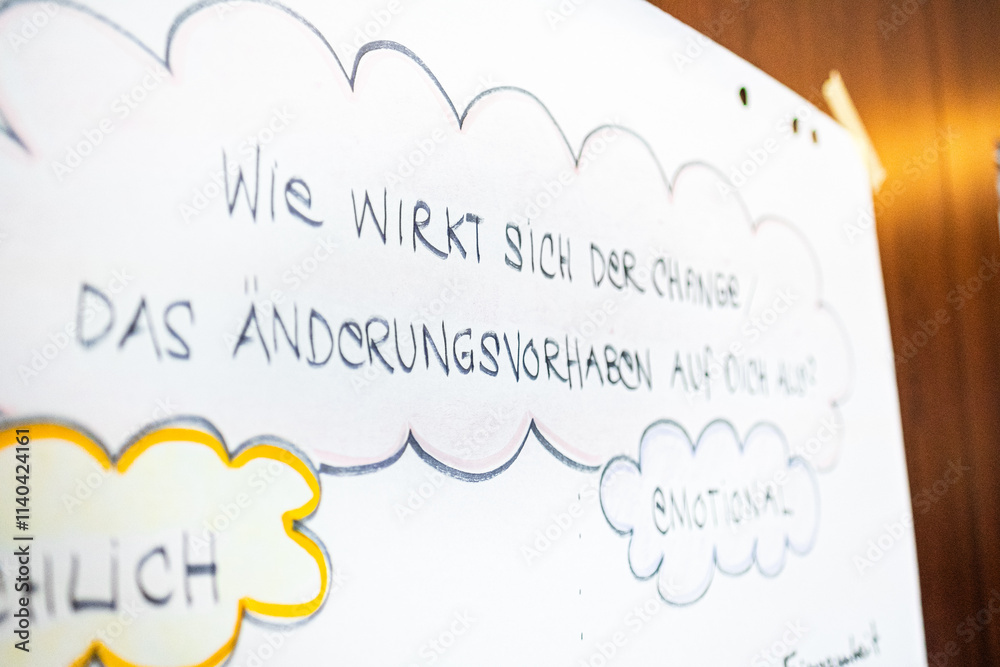 Wie WIRKT SICH DER CHANGE/
DAS ÄNDERUNGSVORHABEN AUF DICH AUS?
EMOTIONAL
Adobe Stock | #1140424161